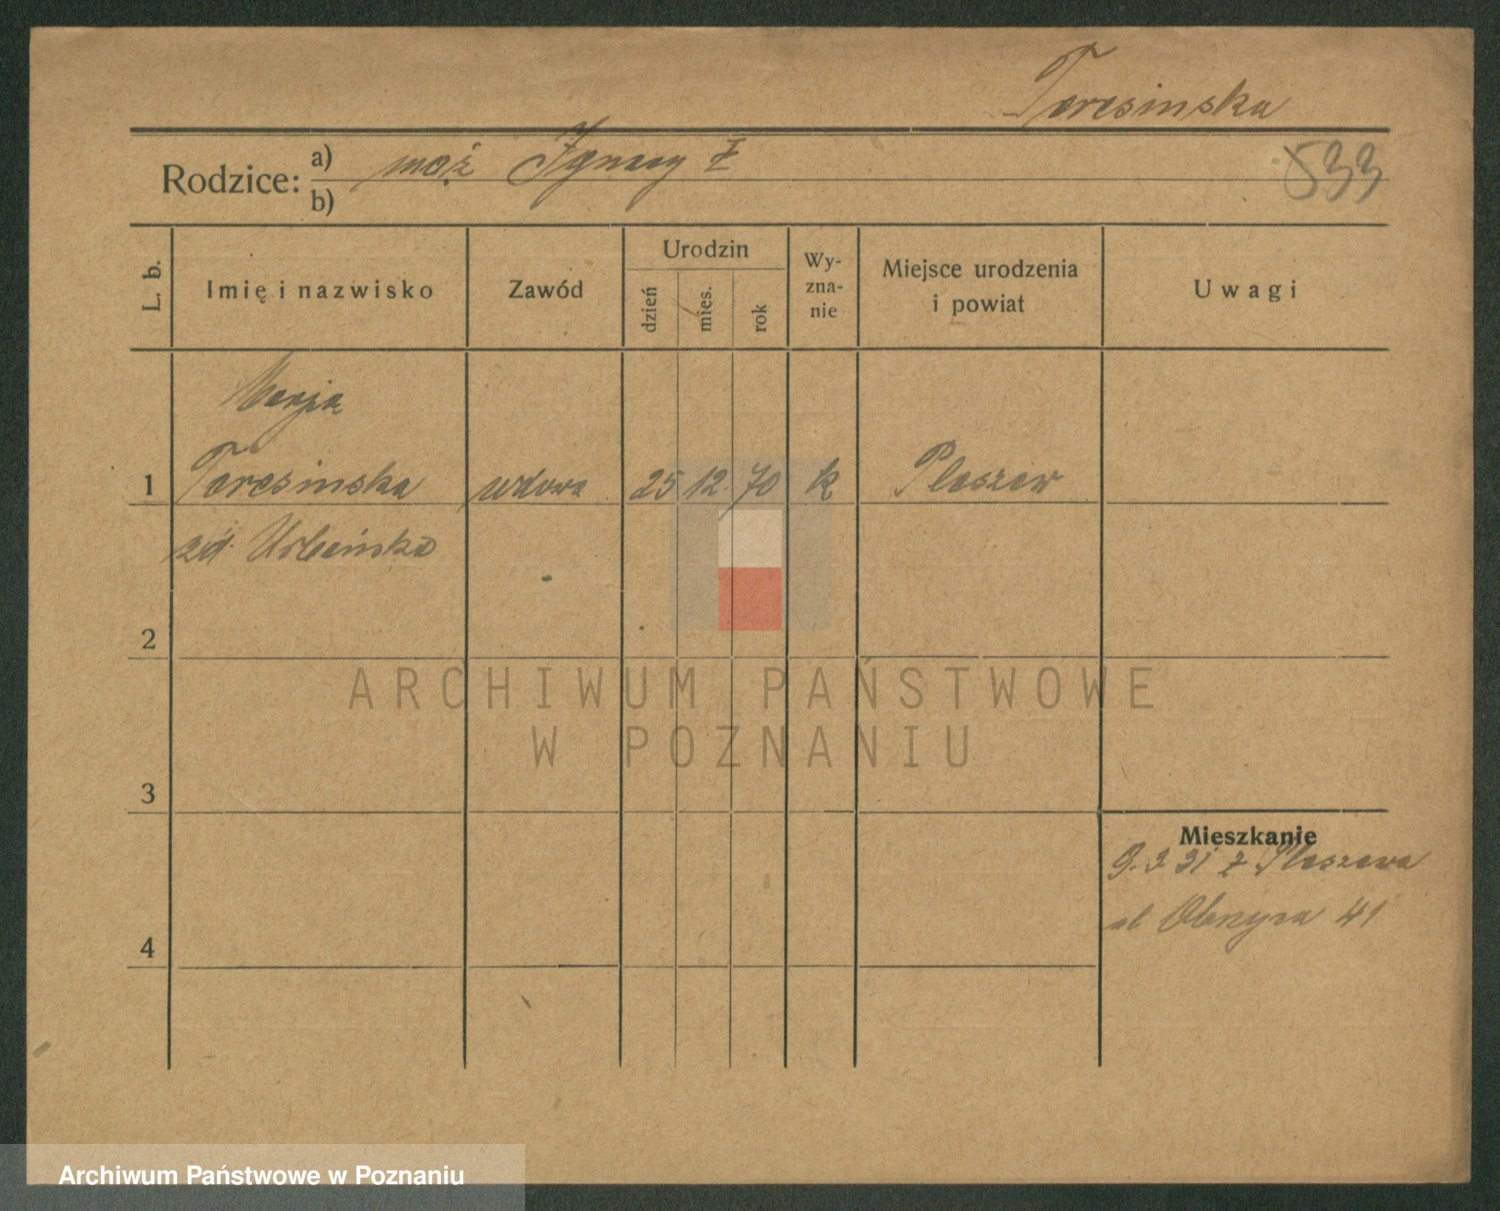 Teresinska
Rodzice: a) mąż Ignacy Ł
b)
533
L. b.
Imię i nazwisko
Zawód
Urodzin
dzień
mies.
rok
Wy-
zna-
nie
Miejsce urodzenia
i powiat
Uwagi
Marja
1 Teresinska wdowa 25 12 70 k Pleszew
zd. Urbańska
2
ARCHIWUM PAŃSTWOWE
W POZNANIU
3
Mieszkanie
9. 3 31 z Pleszewa
ul
41
4
Archiwum Państwowe w Poznaniu